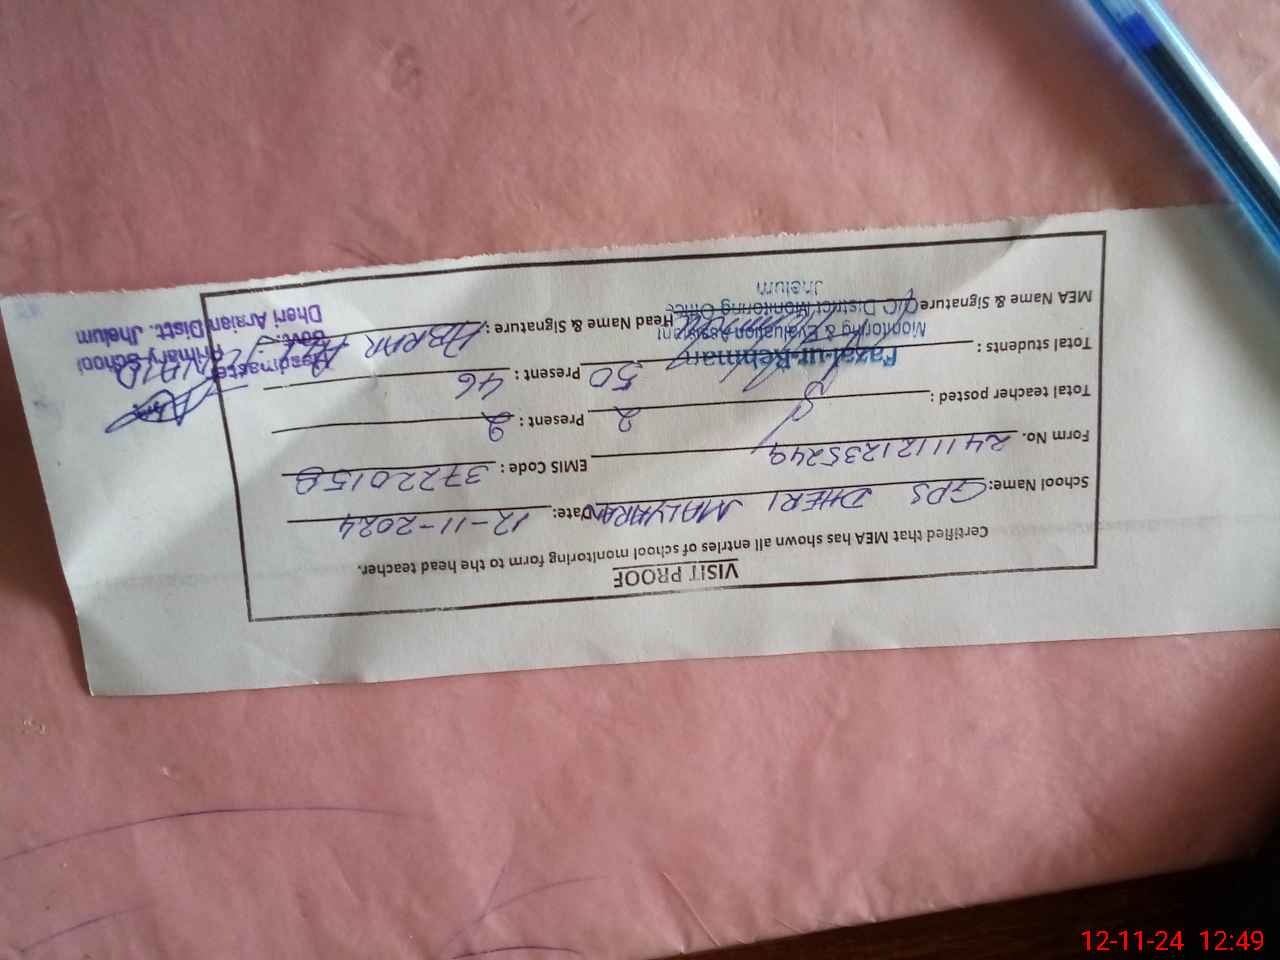 VISIT PROOF
Certified that MEA has shown all entries of school monitoring form to the head teacher.
School Name: GPS DHERI Date: 12-11-2024
Form No. 241112123524 EMIS Code: 37220158
Total teacher posted: 2 Present: 2
Total students: 50 Present: 46
MEA Name & Signature Head Name & Signature: ABRAR
Fazal-ur-Rehman
Monitoring & Evaluation Assistant
O/C District Monitoring Office
Jhelum
Headmaster
Govt. Primary School
Dheri Araian Distt. Jhelum
12-11-24 12:49